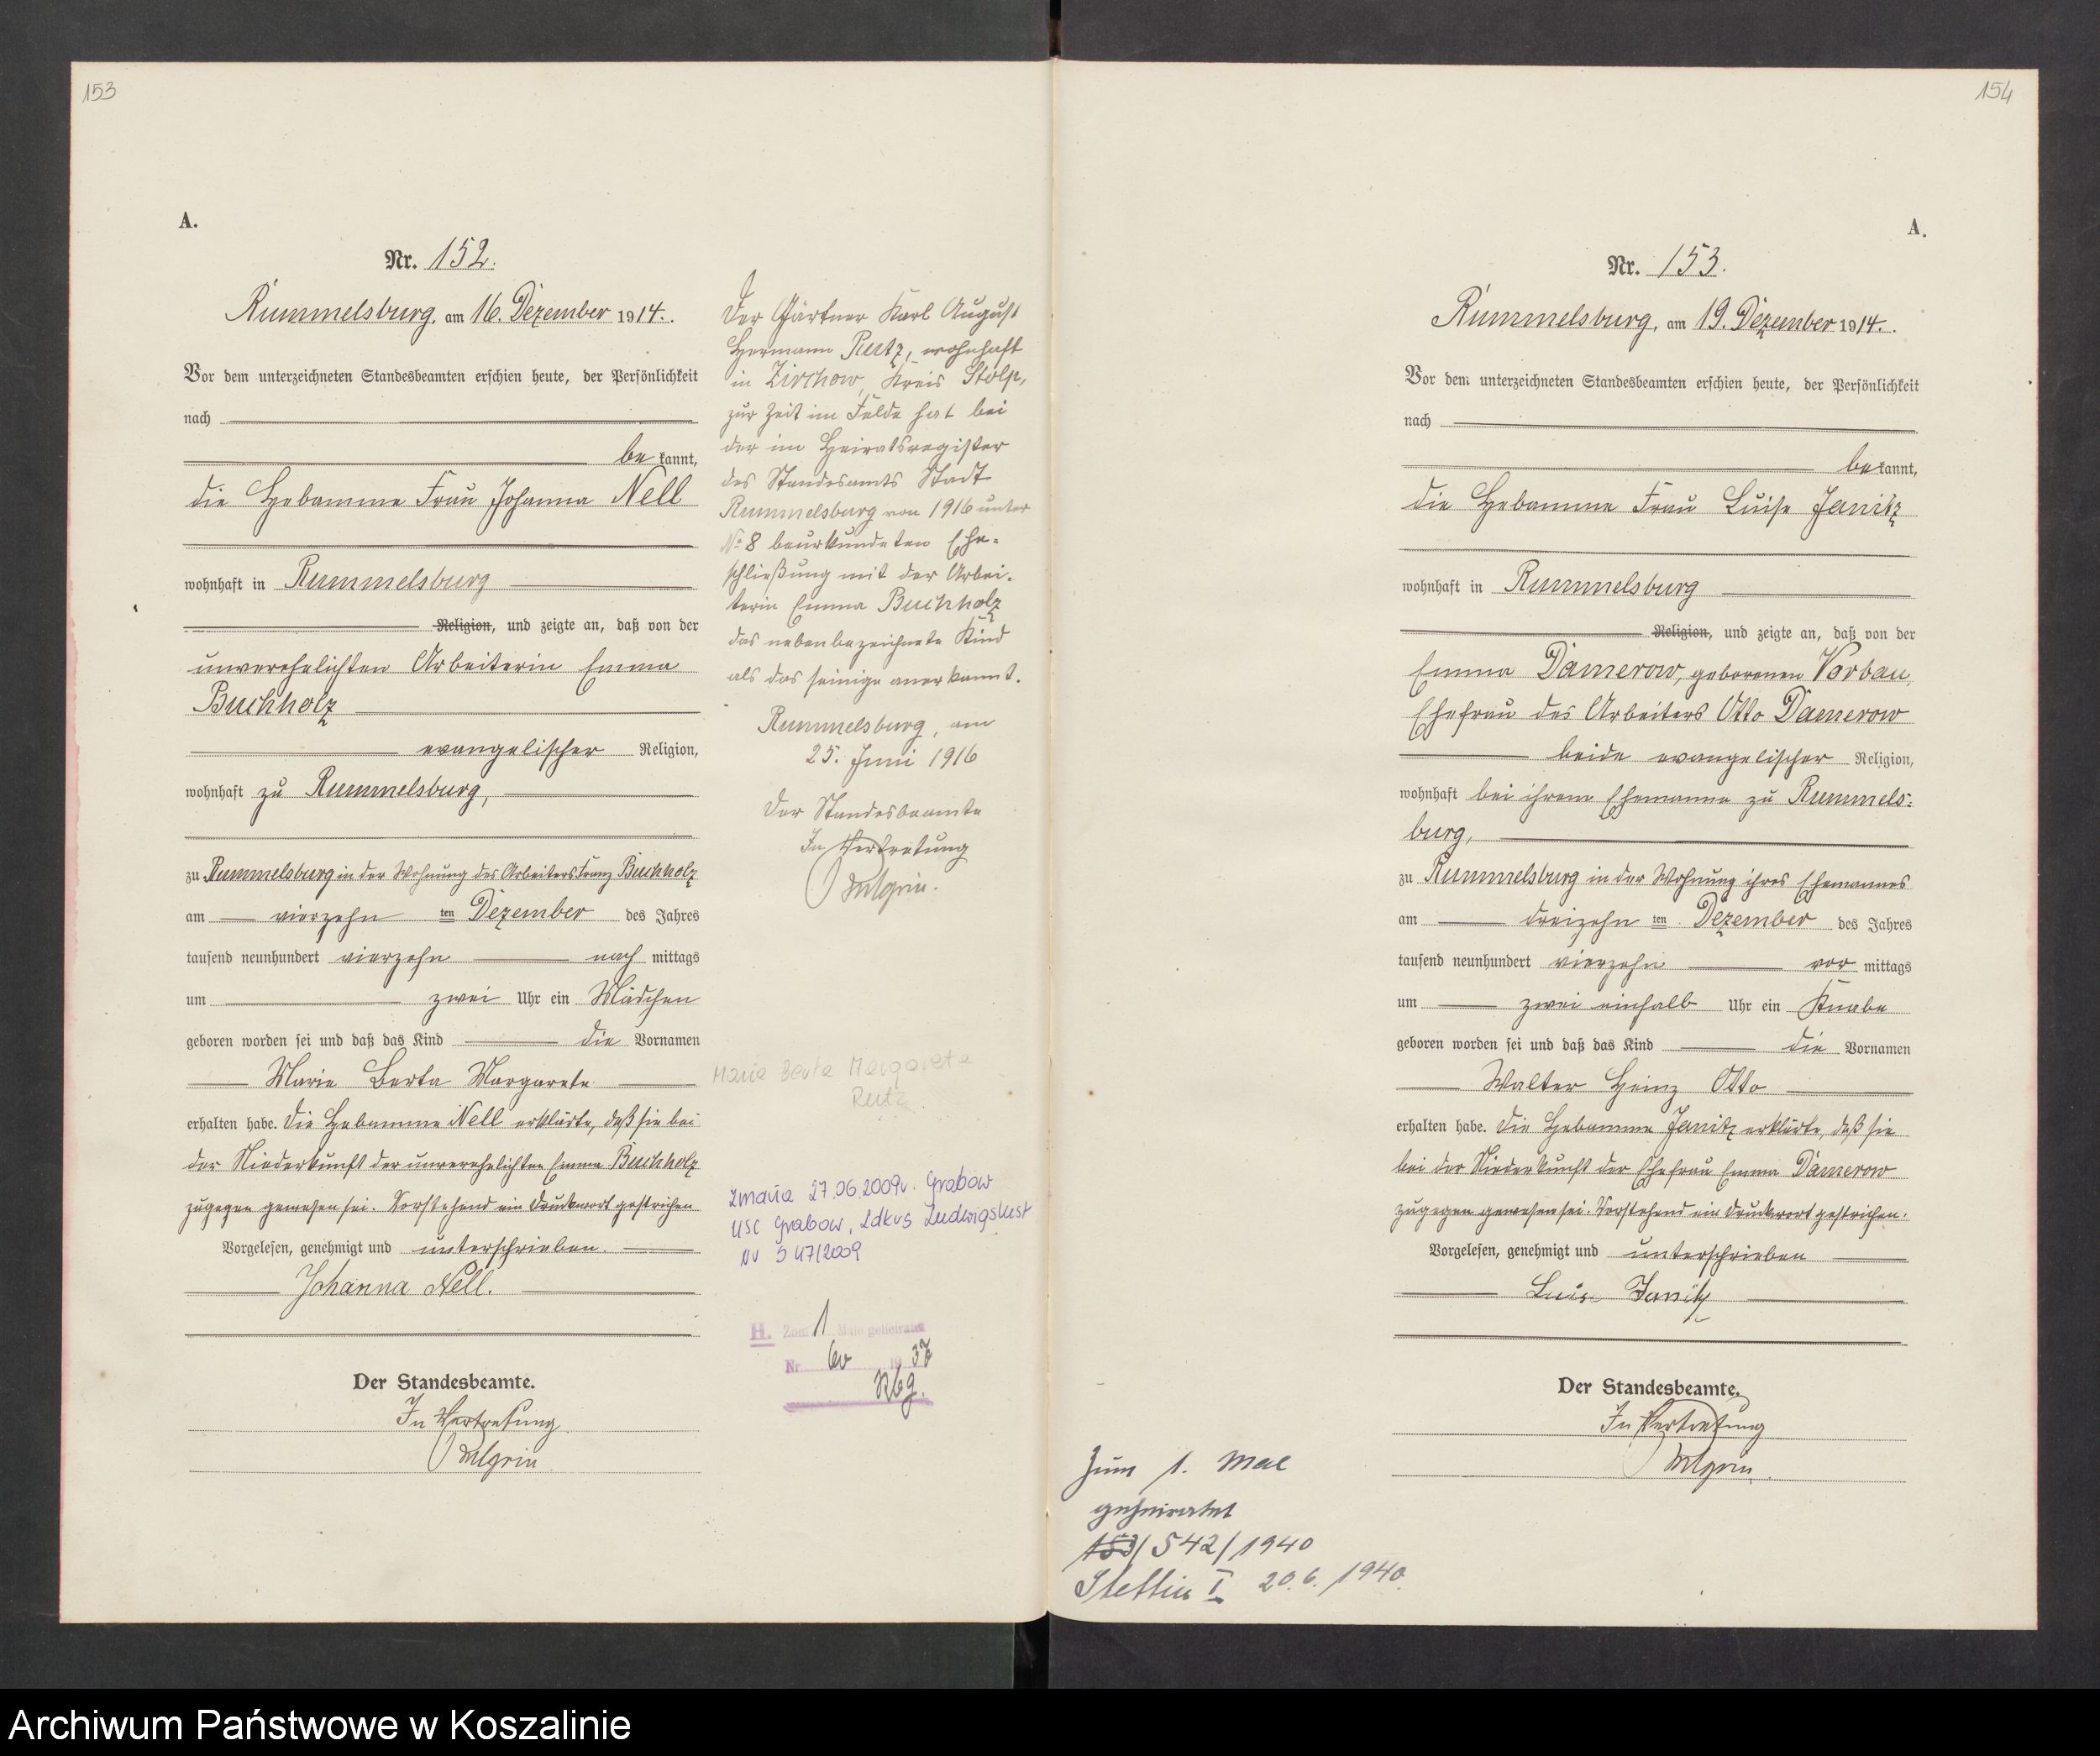 153
A.
Nr. 152.
Rummelsburg, am 16. Dezember 1914.
Vor dem unterzeichneten Standesbeamten erschien heute, der Persönlichkeit
nach
be kannt,
die Hebamme Frau Johanna Nell
wohnhaft in Rummelsburg
Religion, und zeigte an, daß von der
unverehelichten Arbeiterin Emma
Buchholz
evangelischer Religion,
wohnhaft zu Rummelsburg,
zu Rummelsburg in der Wohnung des Arbeiters Franz Buchholz
am vierzehn ten Dezember des Jahres
tausend neunhundert vierzehn nach mittags
um zwei Uhr ein Mädchen
geboren worden sei und daß das Kind die Vornamen
Marie Berta Margarete
erhalten habe. Die Hebamme Nell erklärte, daß sie bei
der Niederkunft der unverehelichten Emma Buchholz
zugegen gewesen sei. Vorstehend ein Druckwort gestrichen
Vorgelesen, genehmigt und unterschrieben.
Johanna Nell.
Der Standesbeamte.
In Vertretung
Der Gärtner Karl August
Hermann Rutz, wohnhaft
in Zirchow, Kreis Stolp,
zur Zeit im Felde hat bei
der im Heiratsregister
des Standesamts Stadt
Rummelsburg von 1916 unter
No 8 beurkundeten Ehe-
schließung mit der Arbei-
terin Emma Buchholz
das nebenbezeichnete Kind
als das seinige anerkannt.
Rummelsburg, am
25. Juni 1916
Der Standesbeamte
In Vertretung
Marie Berta Margarete
Rutz
zmarła 27.06.2009r. Grabow
USC Grabow, Ldkrs Ludwigslust
Nr S 47/2009
H. Zum 1 Male geheiratet
Nr. 60 19 37
Rbg.
154
A.
Nr. 153.
Rummelsburg, am 19. Dezember 1914.
Vor dem unterzeichneten Standesbeamten erschien heute, der Persönlichkeit
nach
be kannt,
die Hebamme Frau Luise Janitz
wohnhaft in Rummelsburg
Religion, und zeigte an, daß von der
Emma Damerow, geborenen Vorbau,
Ehefrau des Arbeiters Otto Damerow
beide evangelischer Religion,
wohnhaft bei ihrem Ehemanne zu Rummels-
burg,
zu Rummelsburg in der Wohnung ihres Ehemannes
am dreizehn ten Dezember des Jahres
tausend neunhundert vierzehn vor mittags
um zwei einhalb Uhr ein Knabe
geboren worden sei und daß das Kind die Vornamen
Walter Heinz Otto
erhalten habe. Die Hebamme Janitz erklärte, daß sie
bei der Niederkunft der Ehefrau Emma Damerow
zugegen gewesen sei. Vorstehend ein Druckwort gestrichen.
Vorgelesen, genehmigt und unterschrieben
Luise Janitz
Der Standesbeamte.
In Vertretung
Zum 1. Mal
geheiratet
153/542/1940
Stettin I 20.6.1940.
Archiwum Państwowe w Koszalinie